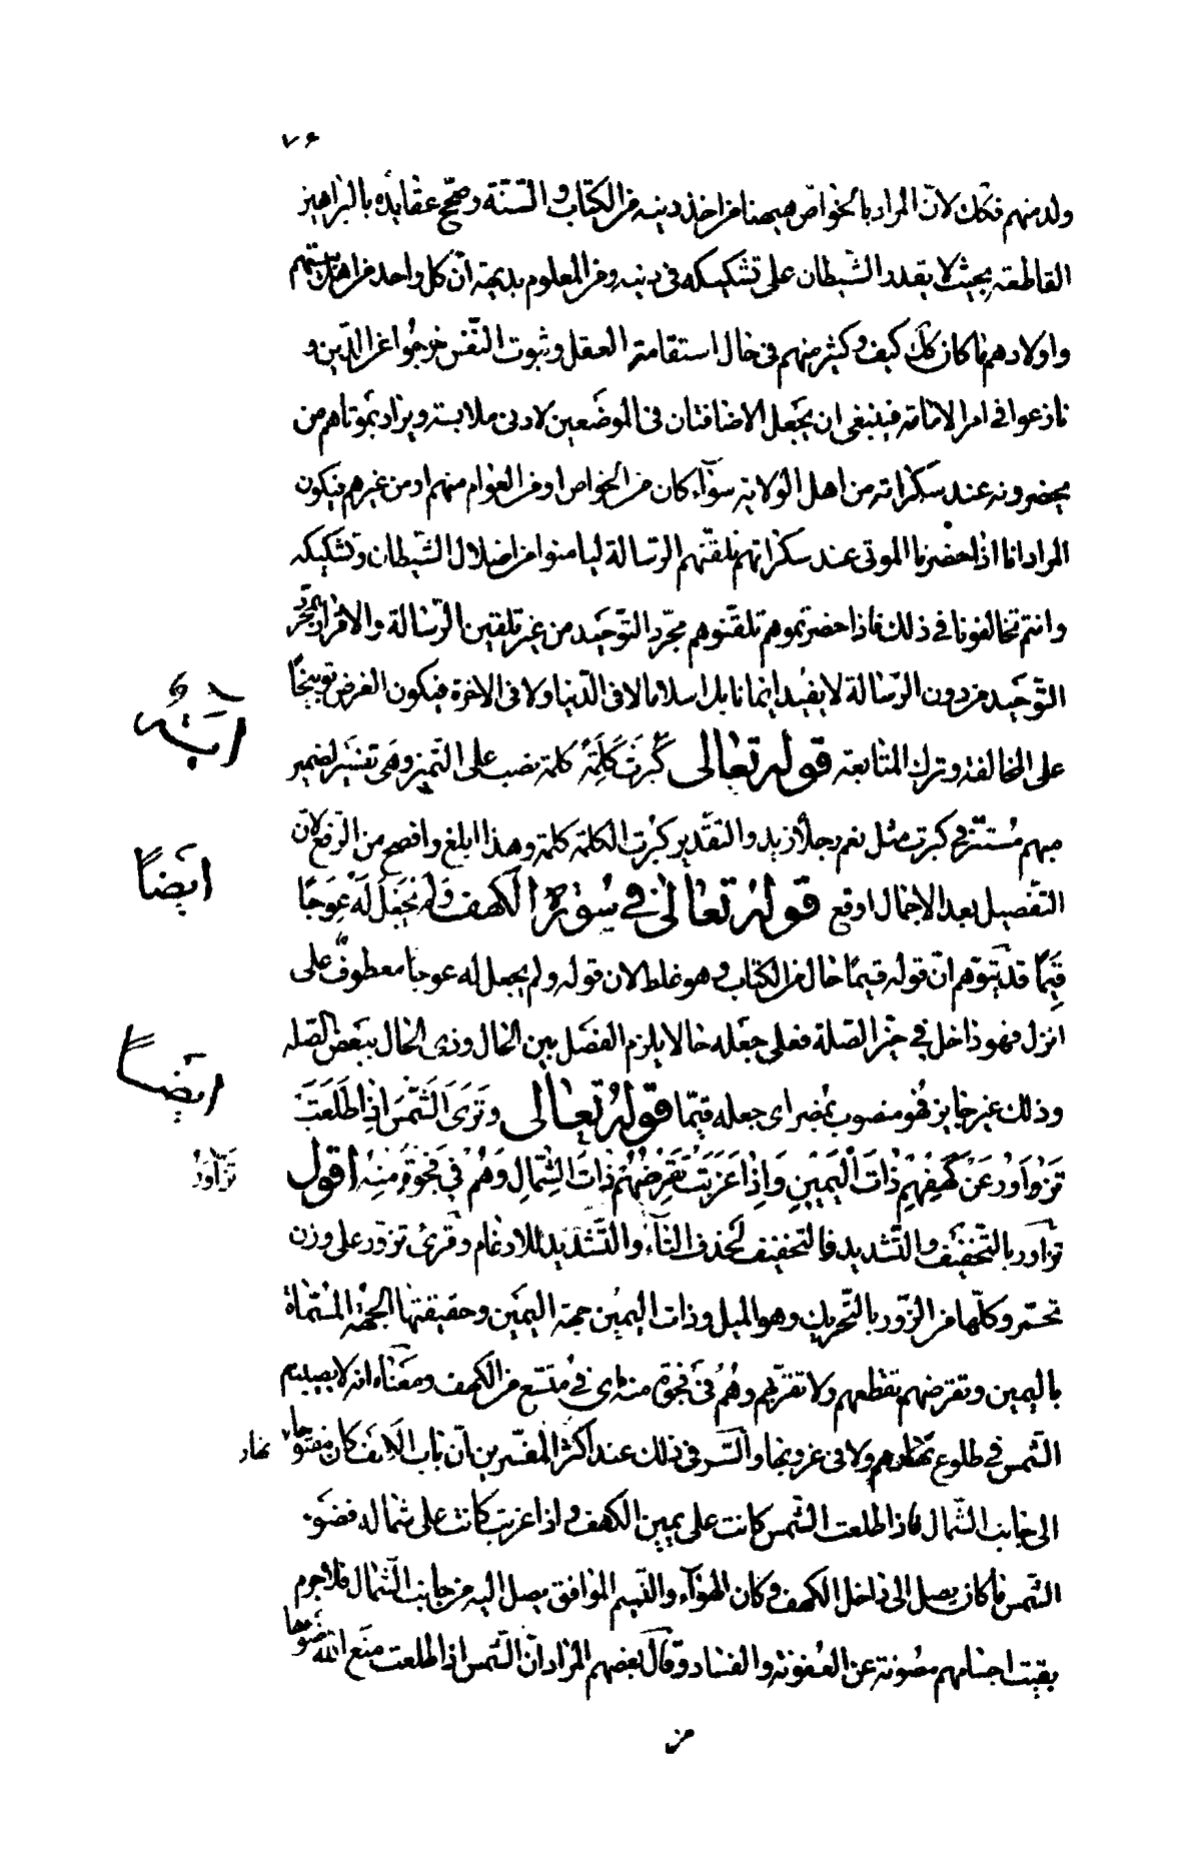 ٧۶
ولد منهم فكان لانّ المراد بالخواصّ هيهنا من اخذ دينه من الكتاب والسّنّة وصحّح عقايده بالبراهين
القاطعة بحيث لا يقدر الشّيطان على تشكيكه فى دينه ومن المعلوم بديهة انّ كل واحد من اهل بيتهم
واولادهم ما كان كك كيف وكثير منهم فى حال استقامة العقل وثبوت النّفس خرجوا عن الدّين و
نازعوا فى امر الامامة فينبغى ان يجعل الاضافتان فى الموضعين لادنى ملابسة ويراد بموتاهم من
يحضرونه عند سكراته من اهل الولاية سوآء كان من الخواص او من العوام منهم او من غيرهم فيكون
المراد انا اذا حضرنا الموتى عند سكراتهم نلقّنهم الرّسالة ليامنوا من اضلال الشّيطان وتشكيكه
وانتم تخالفونا فى ذلك فاذا حضرتموهم تلقّنوهم مجرّد التّوحيد من غير تلقين الرّسالة والاقرار بمجرّد
التّوحيد من دون الرّسالة لا يفيد ايمانا بل اسلاما لا فى الدّنيا ولا فى الاخرة فيكون الغرض توبيخًا
على المخالفة وترك المتابعة قوله تعالى كَبُرَتْ كَلِمَةً كلمة نصب على التّميز وهى تفسير لضمير
مبهم مُستتر فى كبرت مثل نعم رجلاً زيد والتقدير كبرت الكلمة كلمة وهذا ابلغ وافصح من الرّفع لانّ
التّفصيل بعد الاجمال اوقع قوله تعالى فى سورة الكهف وَلَمْ نَجْعَلْ لَهُ عِوَجًا
قَيِّمًا قد يتوّهم انّ قوله قيمًا حال من الكتاب وهو غلط لان قوله ولم يجعل له عوجا معطوف على
انزل فهو داخل فى حيّز الصّلة فعلى جعله حالا يلزم الفصل بين الحال وذى الحال ببعض الصّلة
وذلك غير جايز فهو منصوب بمُضمر اى جعله قيّما قوله تعالى وَتَرَى الشَّمْسَ اِذَا طَلَعَتْ
تَزْاوَرُ عَنْ كَهْفِهِمْ ذَاتَ الْيَمِيْنِ وَاِذَا غَرَبَتْ تَقْرِضُهُمْ ذَاتَ الشِّمَالِ وَهُمْ فِى فَجْوَةٍ مِنْهُ اقول
تزاور بالتّخفيف والتّشديد فالتخفيف لحذف التآء والتّشديد للادغام وقرئ تزورّ على وزن
تحمّر وكلّها من الزّور بالتّحريك وهو الميل وذات اليمين جهة اليمين وحقيقتها الجهة المسّماة
باليمين وتقرضهم تقطعهم ولا تقربهم وهُمْ فى فجوة منه اى فى مُتّسع من الكهف ومعناه انه لا يصيبهم
الشّمس فى طلوع نهارهم ولا فى غروبها والسّر فى ذلك عند اكثر المفسّرين انّ باب الكهف كان مفتوحا
الى جانب الشّمال فاذا طلعت الشّمس كانت على يمين الكهف واذا غربت كانت على شماله فضوء
الشّمس ما كان يصل الى داخل الكهف وكان الهوآء والنّسيم الموافق يصل اليه من جانب الشّمال فلا جرم
بقيت اجسامهم مصونة عن العفونة والفساد وقال بعضهم المراد انّ الشّمس اذا طلعت منع اللّه ضوءها
آية
ايضًا
ايضًا
تَزْاوَرُ
نهار
من